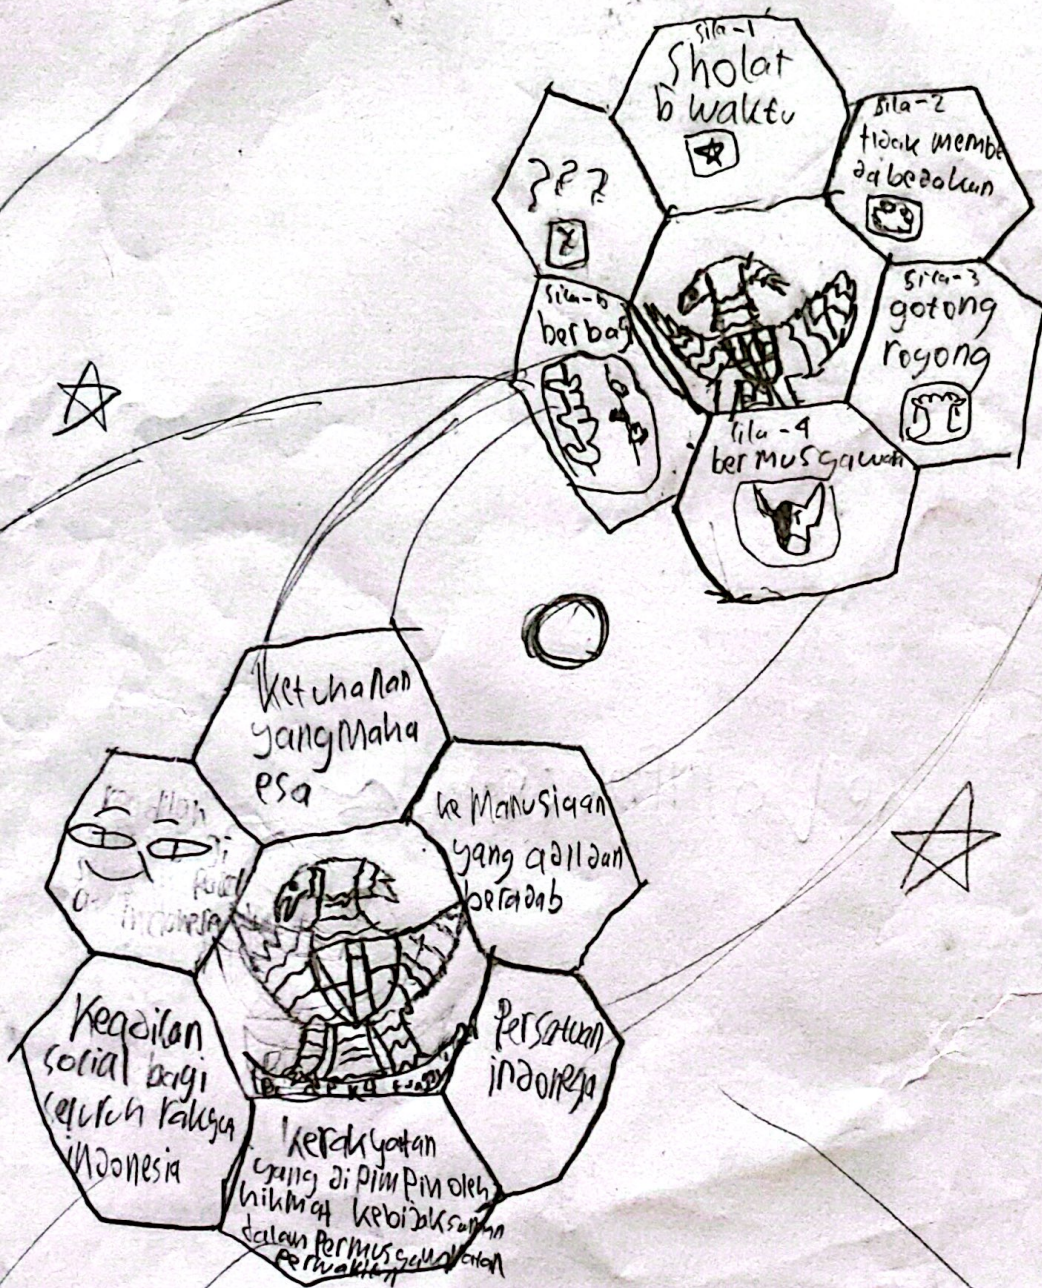 sila-1
Sholat
5 waktu
sila-2
tidak membe
dabedakan
???
sila-3
gotong
royong
sila-5
berbagi
sila-4
bermusyawah
Ketuhanan
yang Maha
esa
keManusiaan
yang adil dan
beradab
indonesia
Persatuan
indonesya
Keadilan
social bagi
seluruh rakyat
indonesia
kerakyatan
yang di pimpin oleh
hikmat kebijaksanaan
dalam Permusyawaratan
perwakilan